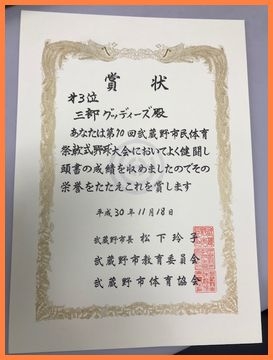 賞状
第3位
三部 グッディーズ殿
あなたは第70回武蔵野市民体育
祭軟式野球大会においてよく健闘し
頭書の成績を収めましたのでその
栄誉をたたえこれを賞します
平成30年11月18日
武蔵野市長 松下玲子
武蔵野市教育委員会
武蔵野市体育協会